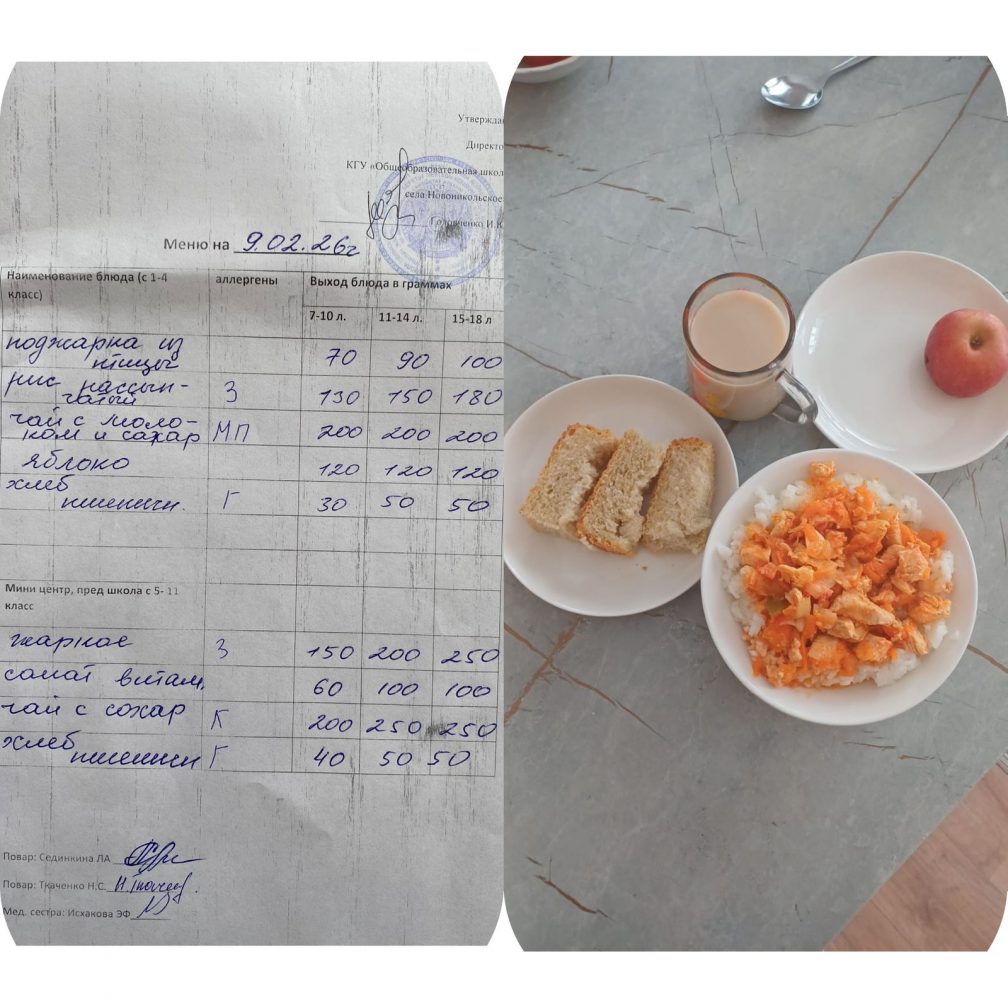 Утвержда
Директо
КГУ «Общеобразовательная школ
села Новоникольское
Головченко И.Ю
Меню на 9.02.26г
Наименование блюда (с 1-4 класс) аллергены Выход блюда в граммах
7-10 л. 11-14 л. 15-18 л
поджарка из птицы 70 90 100
рис рассыпчатый З 130 150 180
чай с молоком и сахар МП 200 200 200
яблоко 120 120 120
хлеб пшеничн. Г 30 50 50
Мини центр, пред школа с 5- 11 класс
жаркое З 150 200 250
салат витам. 60 100 100
чай с сахар К 200 250 250
хлеб пшеничн Г 40 50 50
Повар: Сединкина ЛА
Повар: Ткаченко Н.С.
Мед. сестра: Исхакова ЭФ